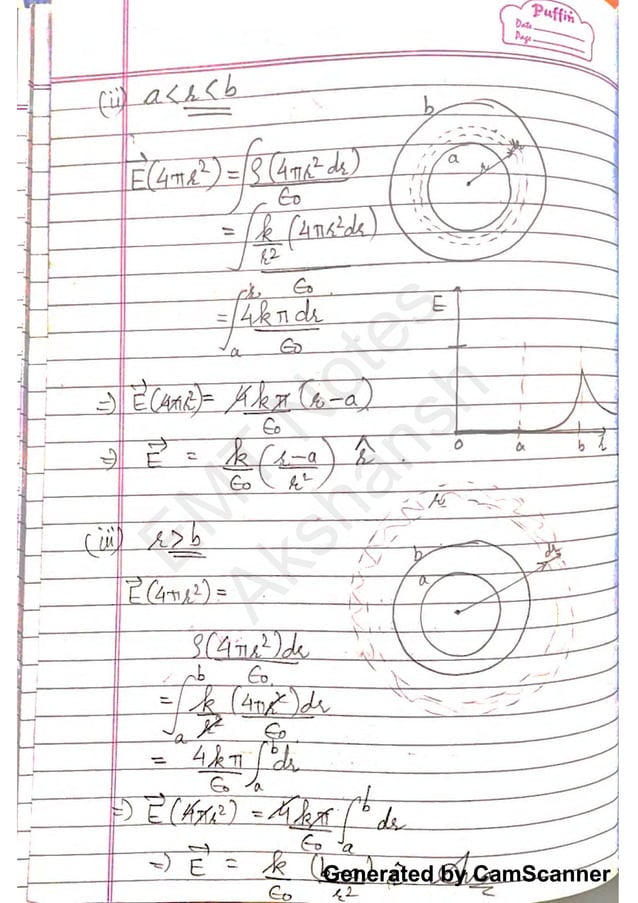 Puffin
Date
Page
(ii) a < r < b
E⃗ (4πr²) = ∫ ρ (4πr² dr) / ε₀
= ∫ k/r² (4πr² dr) / ε₀
= ∫ₐʳ 4kπ dr / ε₀
⇒ E⃗ (4πr²) = 4kπ / ε₀ (r - a)
⇒ E⃗ = k/ε₀ ( r - a / r² ) r̂ .
b
a
r
E
0 a b r
(iii) r > b
E⃗ (4πr²) =
ρ (4πr²) dr / ε₀
= ∫ₐᵇ k/r² (4πr²) dr / ε₀
= 4kπ / ε₀ ∫ₐᵇ dr
⇒ E⃗ (4πr²) = 4kπ / ε₀ ∫ₐᵇ dr
⇒ E⃗ = k/ε₀ (b / r²
b
a
dr
EMT Notes
Akshansh
Generated by CamScanner